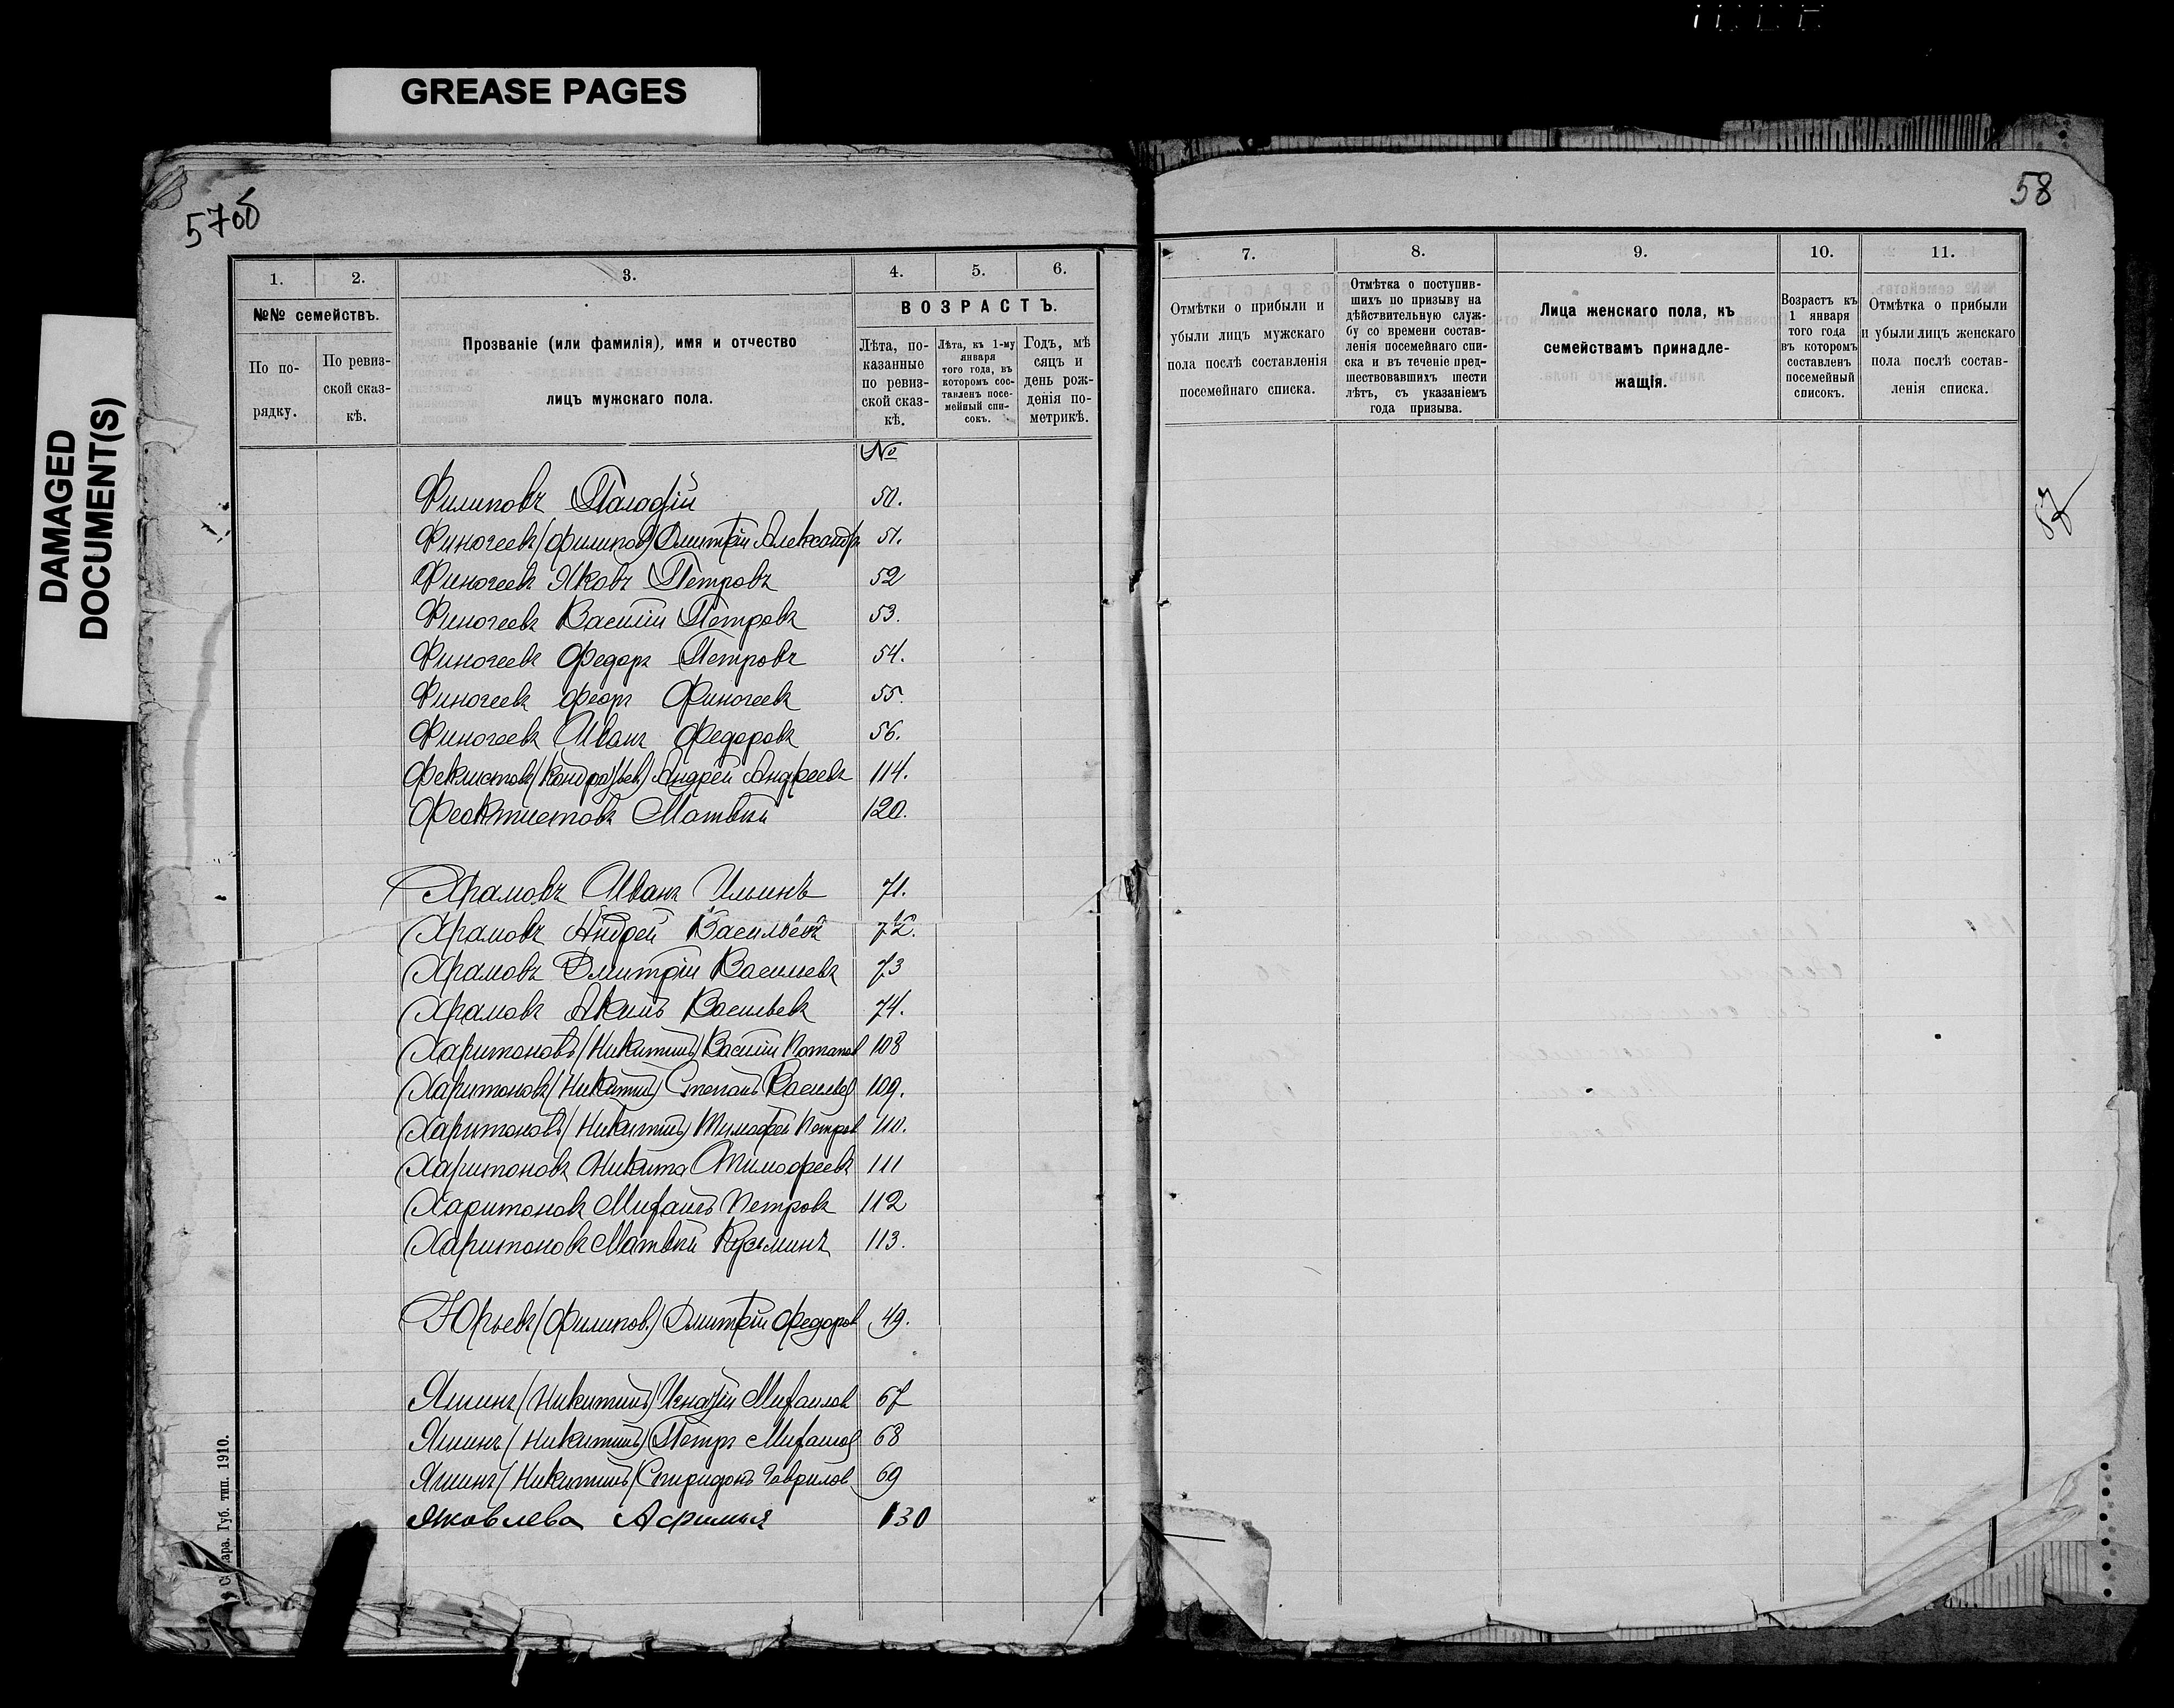 GREASE PAGES
DAMAGED
DOCUMENT(S)
57об
1.
2.
3.
4.
5.
6.
№№ семействъ.
По по-
рядку.
По ревиз-
ской сказ-
кѣ.
Прозваніе (или фамилія), имя и отчество
лицъ мужскаго пола.
ВОЗРАСТЪ.
Лѣта, по-
казанные
по ревиз-
ской сказ-
кѣ.
Лѣта, къ 1-му
января
того года, въ
которомъ сос-
тавленъ посе-
мейный спи-
сокъ.
Годъ, мѣ
сяцъ и
день рож-
денія по-
метрикѣ.
№
Филиповъ 50.
Финогеевъ (Филипов) Дмитрій Александр 51.
Финогеевъ Яковъ Петровъ 52
Финогеевъ Василіи Петровъ 53.
Финогеевъ Федоръ Петровъ 54.
Финогеевъ Финогеевъ 55.
Финогеевъ Иванъ Федоровъ 56.
Фекистовъ (Кондратьев) Андрей Андреевъ 114.
Феоктистовъ Матвѣи 120.
Храмовъ Иванъ Ильинъ 71.
Храмовъ Андрей Васильевъ 72.
Храмовъ Дмитріи Васильевъ 73
Храмовъ Акимъ Васильевъ 74.
Харитоновъ (Никитинъ) Василіи Потапов 108
Харитоновъ (Никитин) Степанъ Васильев 109.
Харитоновъ (Никитинъ) Тимофей Петров 110.
Харитоновъ Никита Тимофеевъ 111
Харитоновъ Михаилъ Петровъ 112
Харитоновъ Матвѣи Кузьминъ 113.
Юрьевъ (Филипов.) Дмитріи Федоров 49.
Яшинъ (Никитинъ) Игнатіи Михаилов 67
Яшинъ (Никитинъ) Петръ Михаилов 68
Яшинъ (Никитинъ) Спиридонъ Гаврилов 69
Яковлева Афимья 130
Губ. тип. 1910.
58
7.
8.
9.
10.
11.
Отмѣтки о прибыли и
убыли лицъ мужскаго
пола послѣ составленія
посемейнаго списка.
Отмѣтка о поступив-
шихъ по призыву на
дѣйствительную служ-
бу со времени состав-
ленія посемейнаго спи-
ска и въ теченіе пред-
шествовавшихъ шести
лѣтъ, съ указаніемъ
года призыва.
Лица женскаго пола, къ
семействамъ принадле-
жащія.
Возрастъ къ
1 января
того года
въ которомъ
составленъ
посемейный
списокъ.
Отмѣтка о прибыли
и убыли лицъ женскаго
пола послѣ состав-
ленія списка.